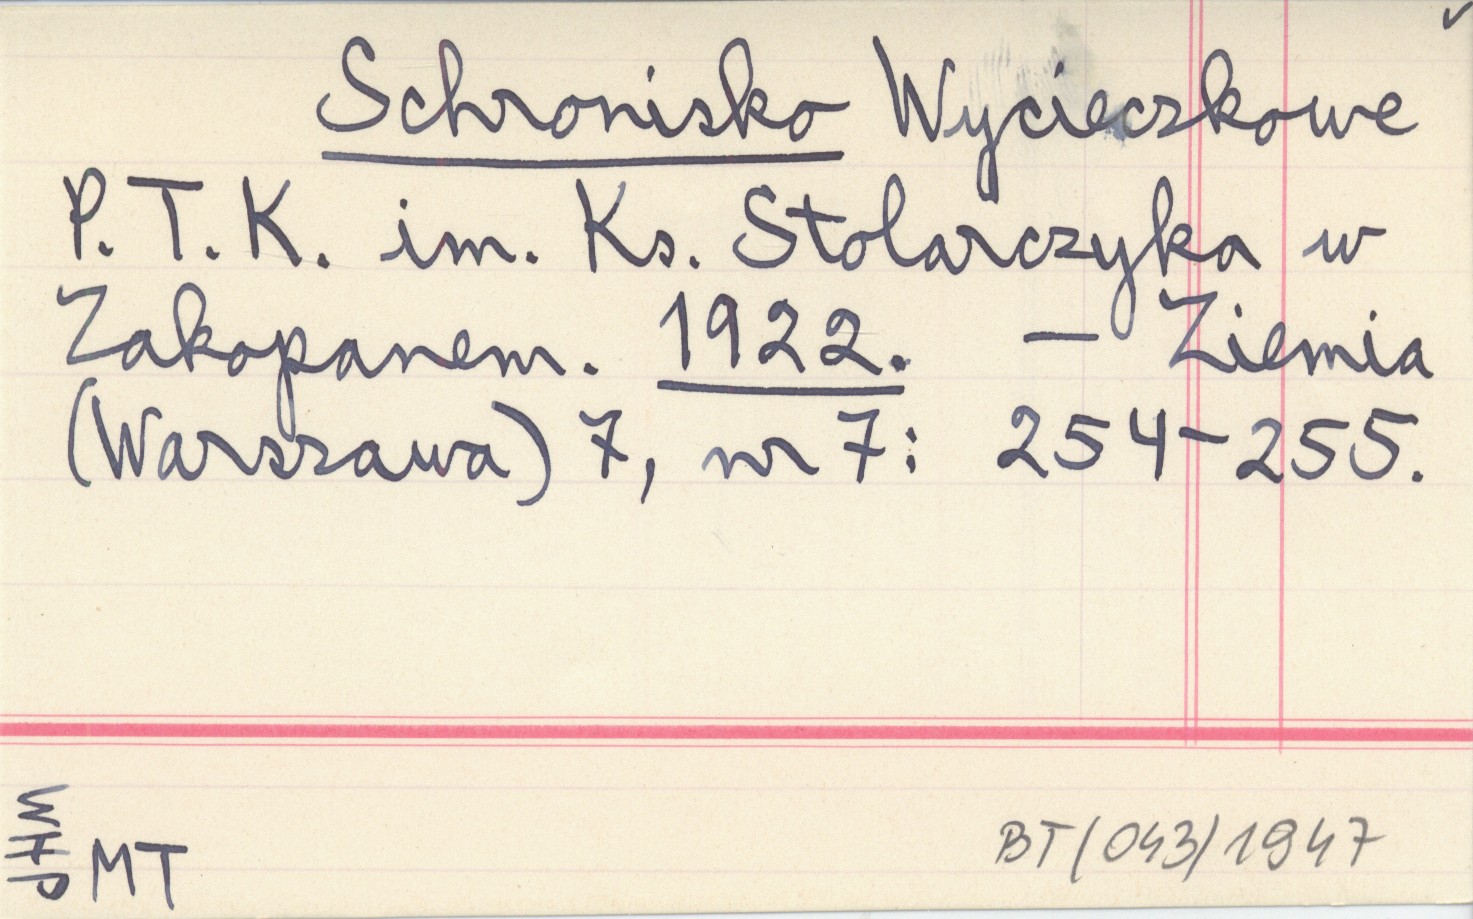 Schronisko Wycieczkowe
P.T.K. im. Ks. Stolarczyka w
Zakopanem. 1922. — Ziemia
(Warszawa) 7, nr 7: 254-255.
WHP
MT
BT/043/1947